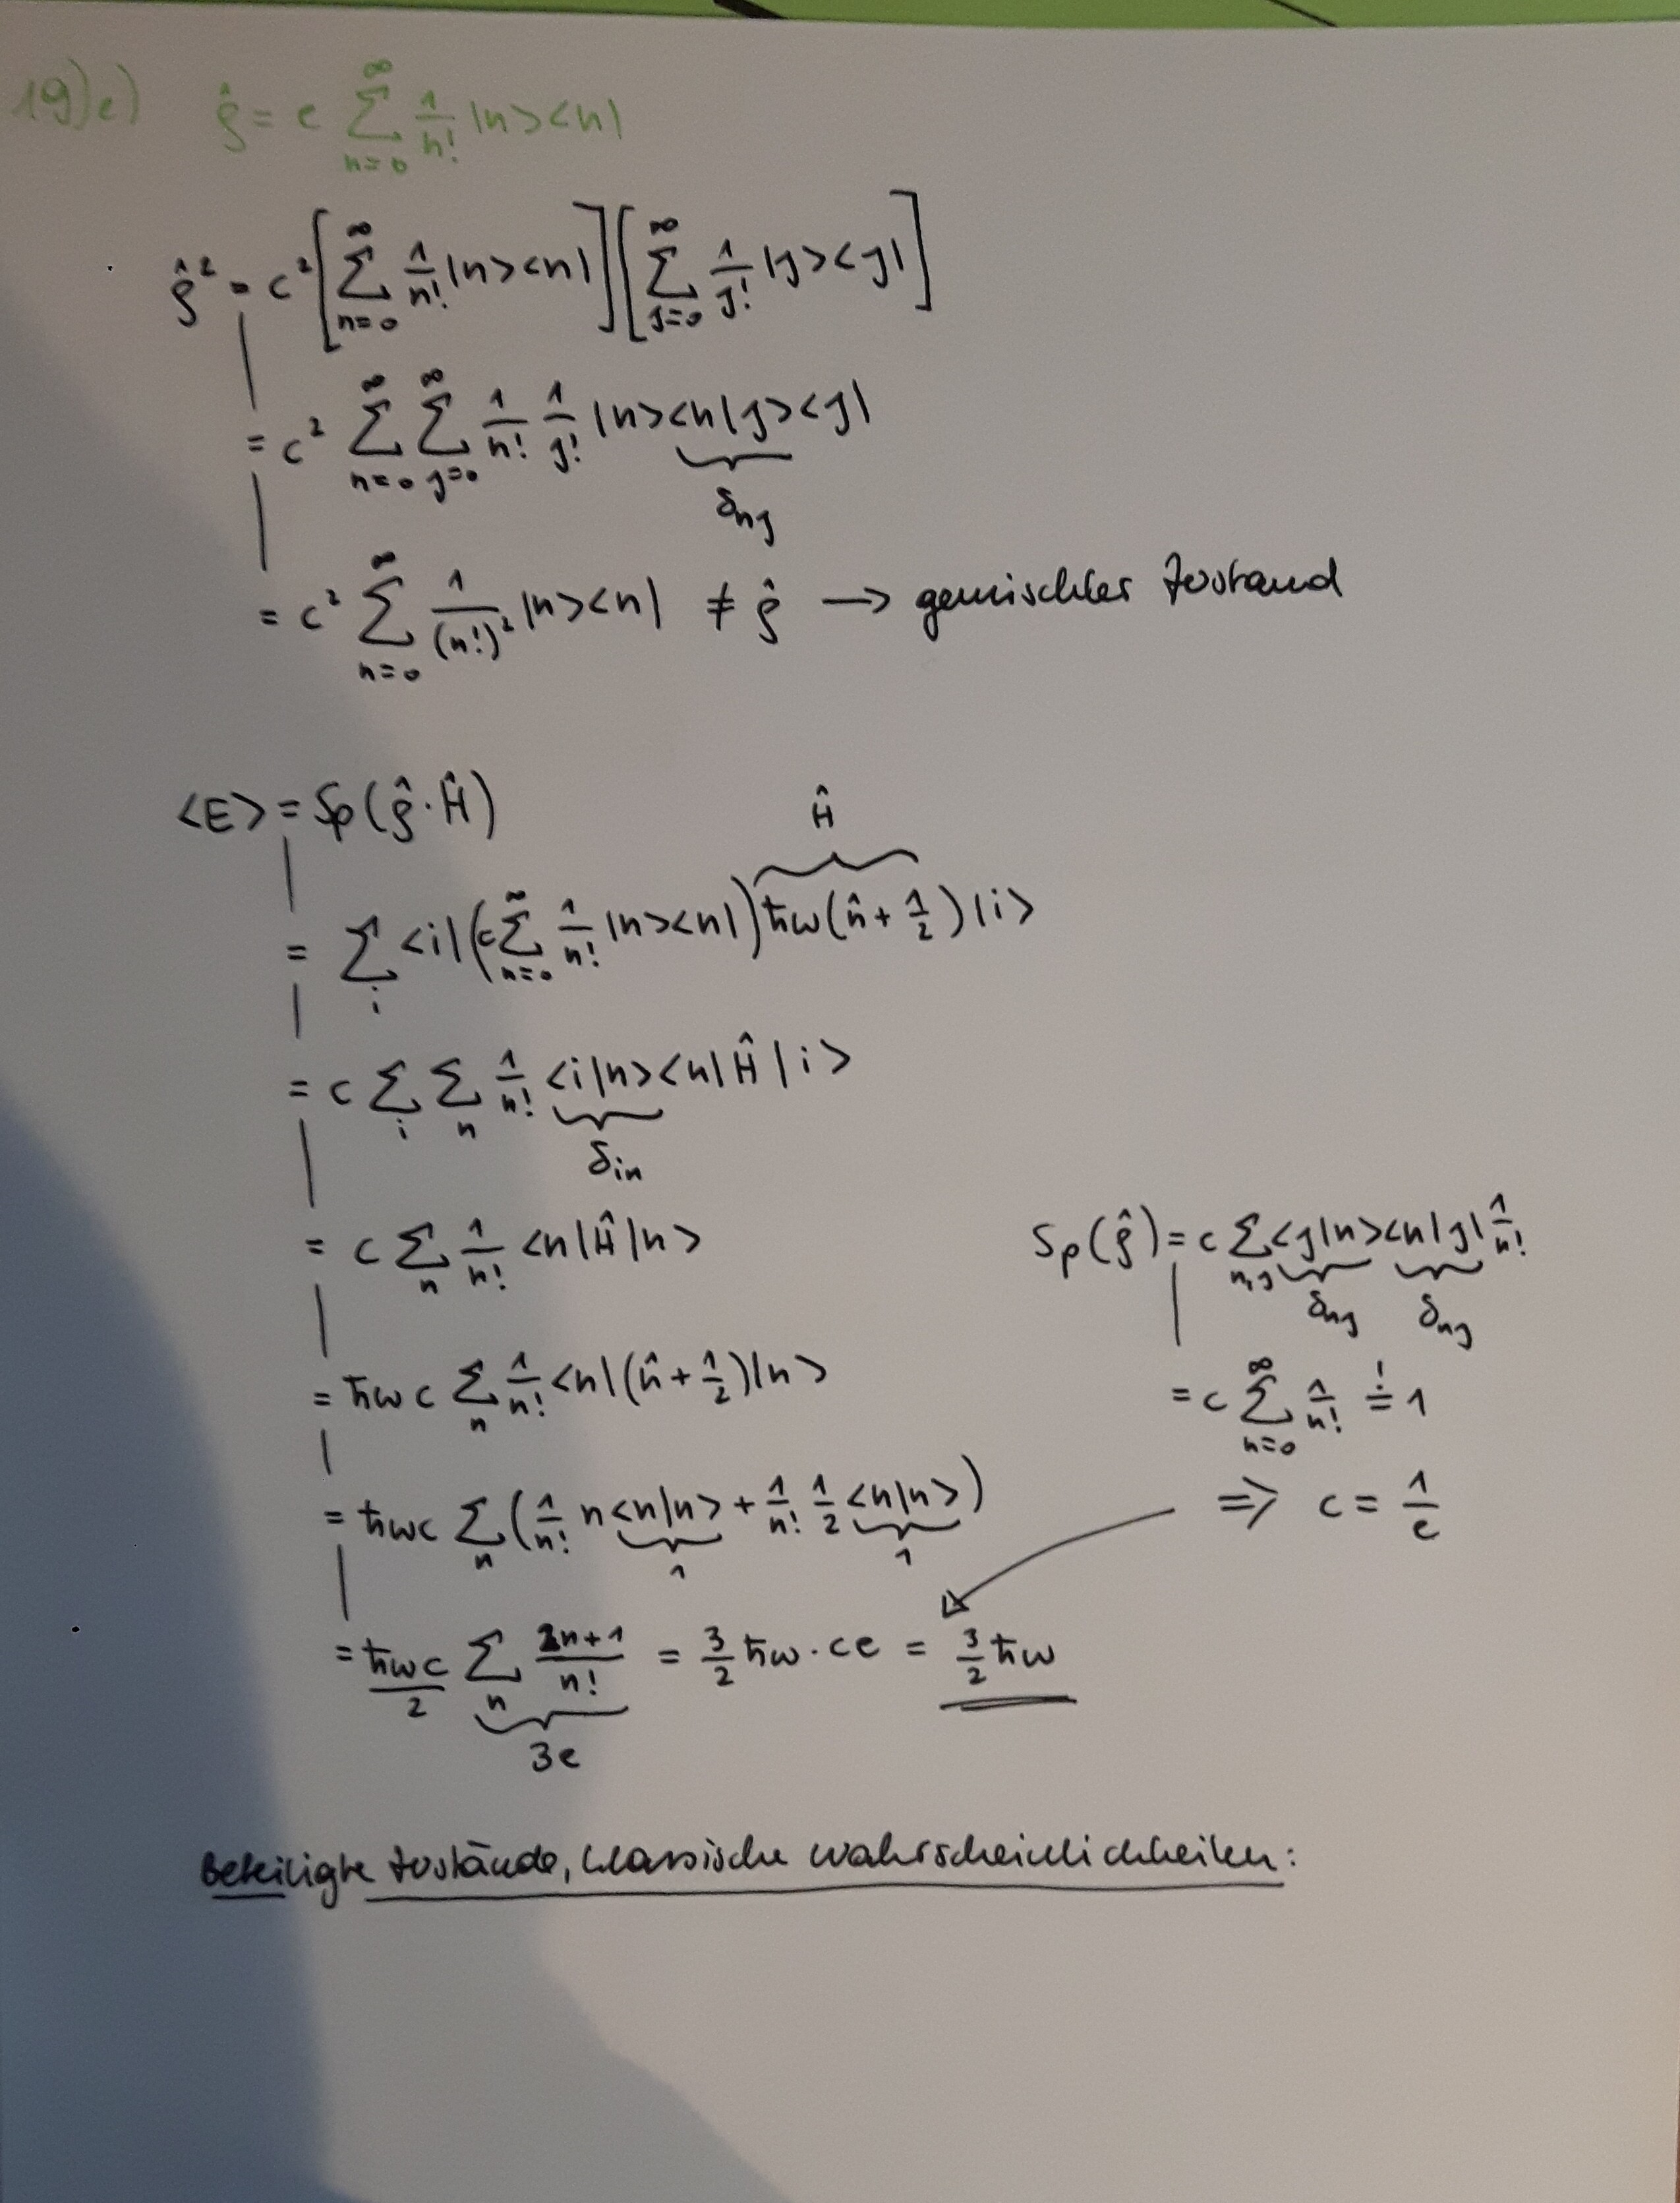 19)e) ρ̂ = c ∑_{n=0}^{∞} 1/n! |n><n|
ρ̂² = c² [∑_{n=0}^{∞} 1/n! |n><n|][∑_{j=0}^{∞} 1/j! |j><j|]
= c² ∑_{n=0}^{∞} ∑_{j=0}^{∞} 1/n! 1/j! |n><n|j><j|
δ_{nj}
= c² ∑_{n=0}^{∞} 1/(n!)² |n><n| ≠ ρ̂ → gemischter Zustand
<E> = Sp(ρ̂·Ĥ)
Ĥ
= ∑_i <i|(c∑_{n=0}^{∞} 1/n! |n><n|) ħω(n̂ + 1/2)|i>
= c ∑_i ∑_n 1/n! <i|n><n|Ĥ|i>
δ_{in}
= c ∑_n 1/n! <n|Ĥ|n>
= ħωc ∑_n 1/n! <n|(n̂ + 1/2)|n>
= ħωc ∑_n (1/n! n<n|n> + 1/n! 1/2 <n|n>)
1 1
= ħωc/2 ∑_n 2n+1/n! = 3/2 ħω·ce = 3/2 ħω
3e
Sp(ρ̂) = c ∑_{n,j} <j|n><n|j| 1/n!
δ_{nj} δ_{nj}
= c ∑_{n=0}^{∞} 1/n! =! 1
⇒ c = 1/e
Beteiligte Zustände, klassische Wahrscheinlichkeiten: